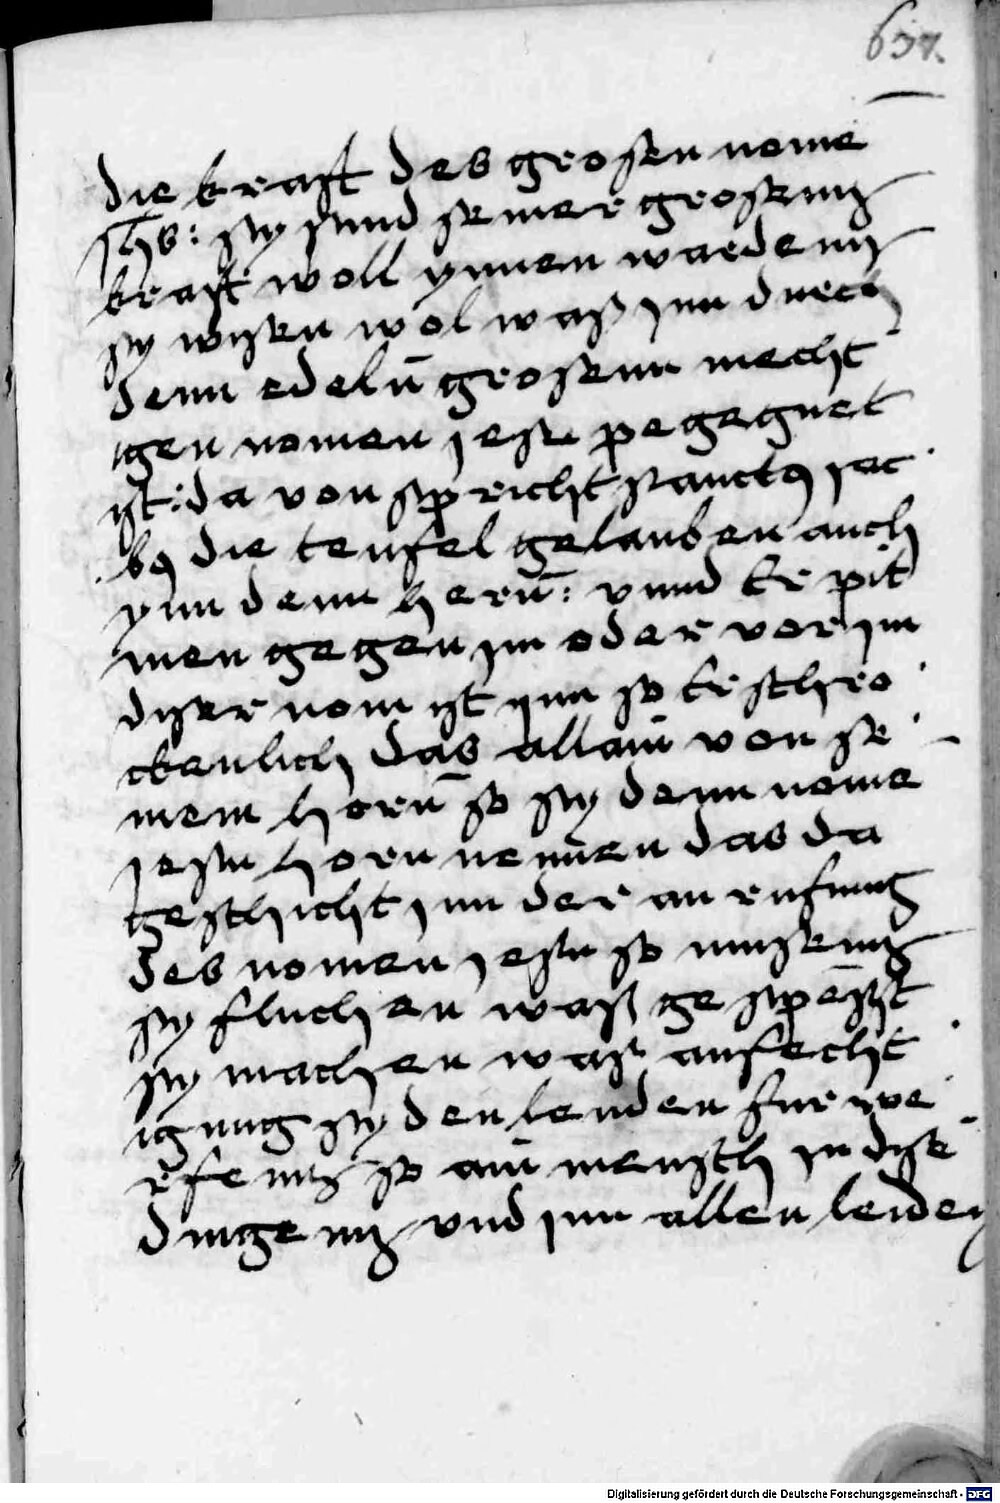 657.
die kraft des grosen nome
jhs: sy sind seiner grosenn
kraft woll ynnen wardenn
sy wisen wol waß jnn durch
denn edeln̄ grosenn mecht
igen nomen jesu pegegnet
ist: da von spricht sanctus jac
bus die teufel gelauben auch
ynn denn hern̄: vnnd er pit
men gegen im oder vor jm
diser nom ist jnn so erschro
ckenlich das allain von se
inem horn̄ so sy denn nome
jesu horn nennen das da
geschicht jnn der an rufung
des nomen jesu so musenn
sy fluchen waß gespēßt
sy machen waß anfecht
igung sy den leuden fur we
rfenn so ain mensch in dise
dingenn vnd jnn allen leiden
Digitalisierung gefördert durch die Deutsche Forschungsgemeinschaft - DFG